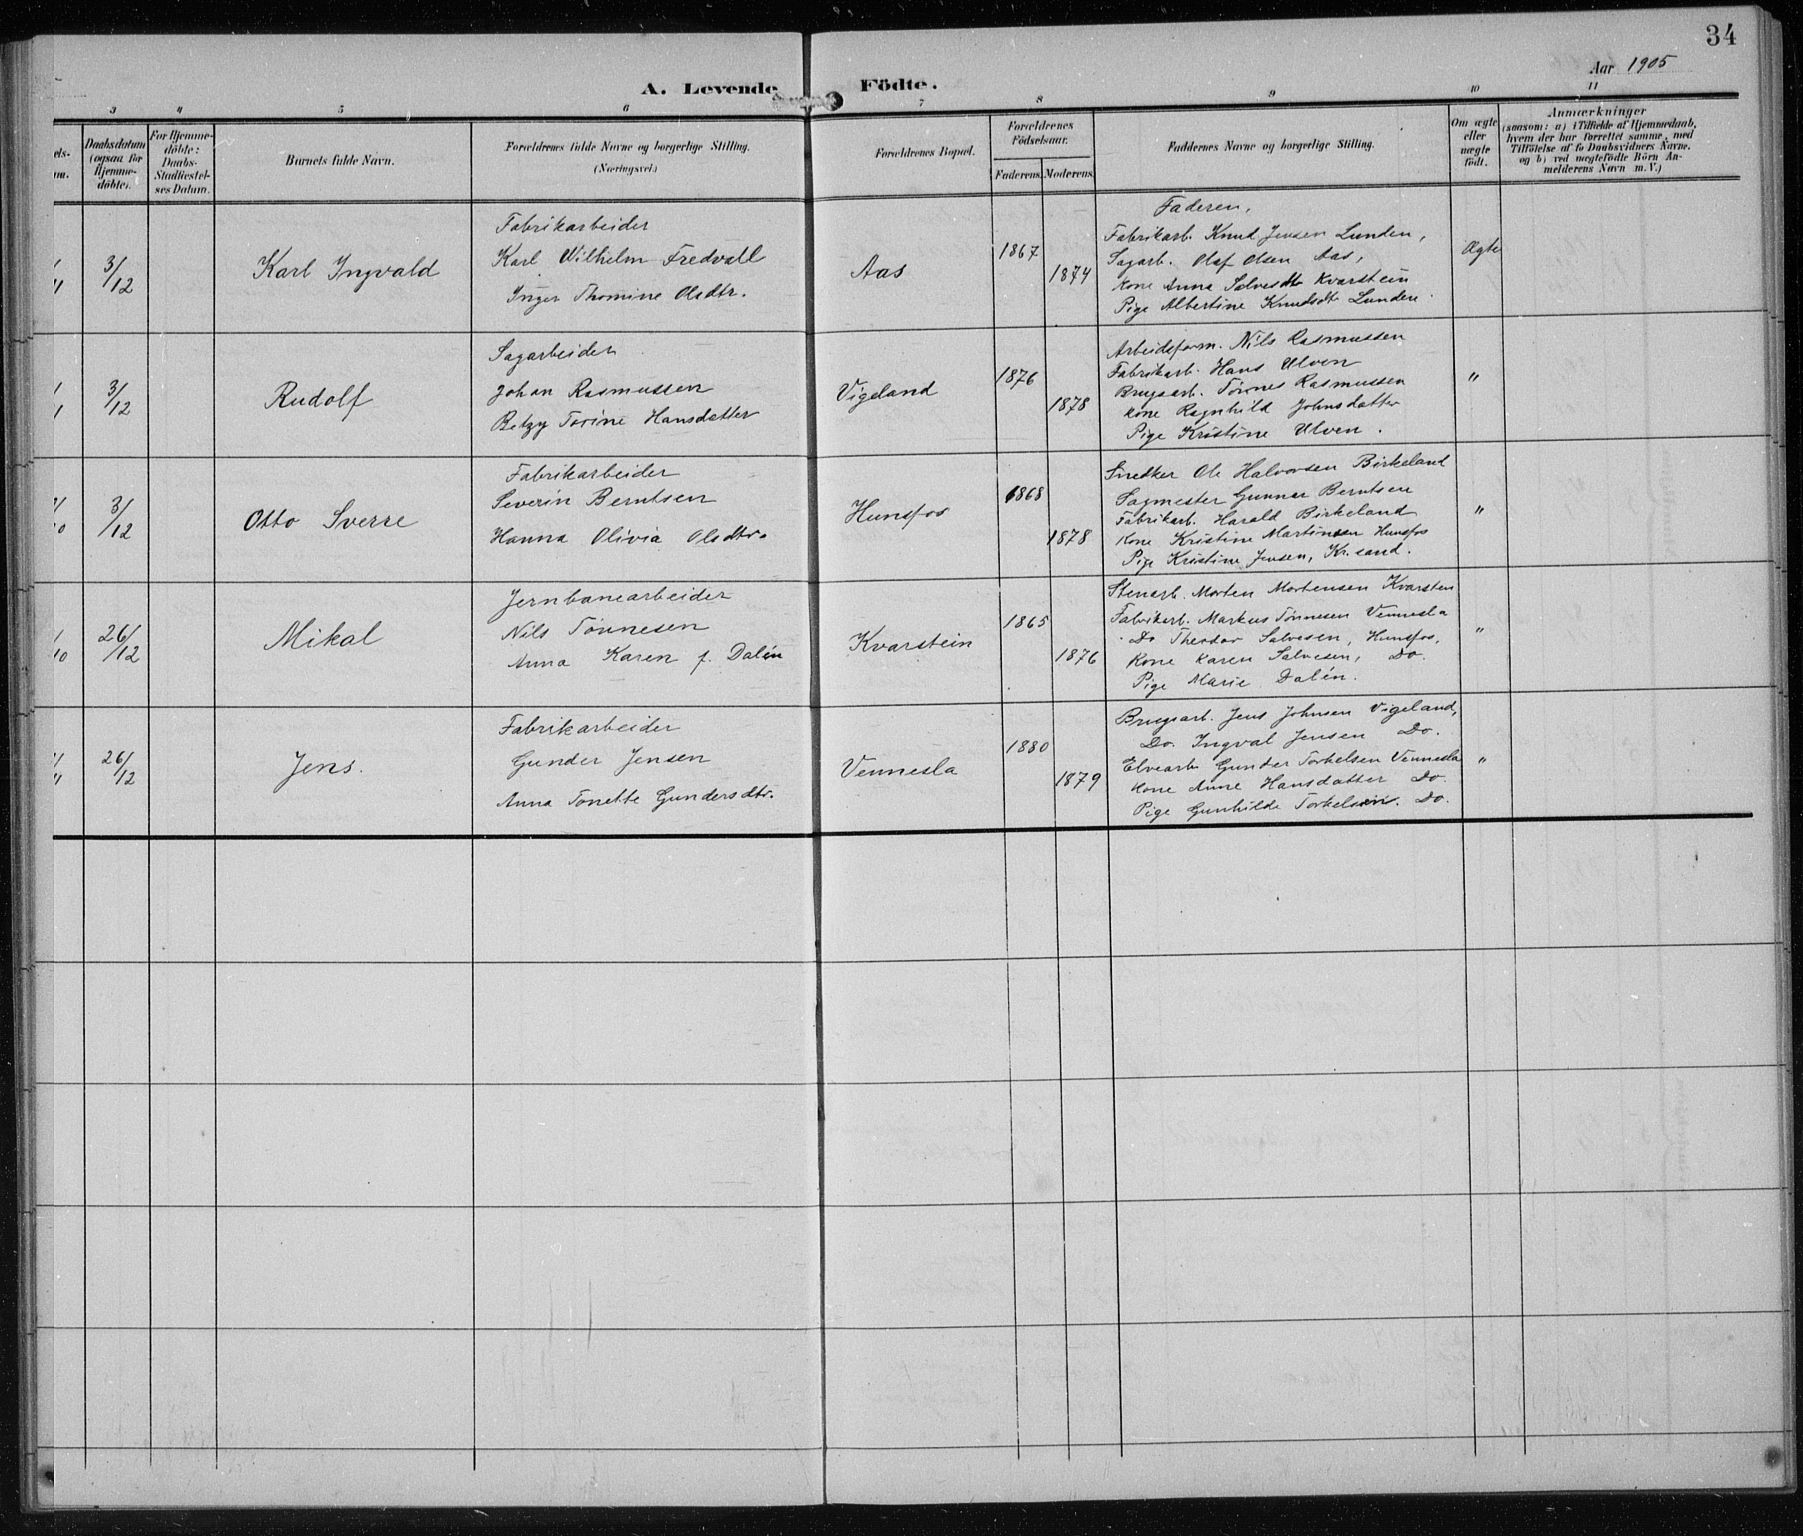 34
Aar 1905
A. Levende Födte.
3 4 5 6 7 8 9 10 11
Daabsdatum (ogsaa for Hjemmedöbte).
For Hjemmedöbte: Daabs-Stadfæstelses Datum.
Barnets fulde Navn.
Forældrenes fulde Navne og borgerlige Stilling. (Næringsvei.)
Forældrenes Bopæl.
Forældrenes Födselsaar.
Faderens.
Moderens.
Faddernes Navne og borgerlige Stilling.
Om ægte eller uægte födt.
Anmærkninger
(saasom: a) i Tilfælde af Hjemmedaab,
hvem der har forrettet samme, med
Tilföielse af to Daabsvidners Navne,
og b) ved uægtefödte Börn An-
melderens Navn m. V.)
3/12
Karl Ingvald
Fabrikarbeider
Karl Wilhelm Fredvall
Inger Thomine Olsdtr.
Aas
1867
1874
Faderen,
Fabrikarb. Knud Jensen Lunden,
Sagarb. Olaf Olsen Aas,
Kone Anna Salvesdtr Kvarstein
Pige Albertine Knudsdtr Lunden.
Ægte
3/12
Rudolf
Sagarbeider
Johan Rasmussen
Betzy Torine Hansdatter
Vigeland
1876
1878
Arbeidsform. Nils Rasmussen
Fabrikarb. Hans Ulven
Brugsarb. Tönnes Rasmussen
Kone Ragnhild Johnsdatter
Pige Kristine Ulven.
"
3/12
Otto Sverre
Fabrikarbeider
Severin Berntsen
Hanna Olivia Olsdtr.
Hunsfos
1868
1878
Snedker Ole Halvorsen Birkeland
Sagmester Gunnar Berntsen
Fabrikarb. Harald Birkeland
Kone Kristine Martinsen Hunsfos
Pige Kristine Jensen, Kr.sand.
"
26/12
Mikal
Jernbanearbeider
Nils Tönnesen
Anna Karen f. Dalén
Kvarstein
1865
1876
Stenarb. Morten Mortensen Kvarsten
Fabrikarb. Markus Tönnesen Vennesla
Do Theodor Salvesen, Hunsfos,
Kone Karen Salvesen, Do.
Pige Marie Dalén.
"
26/12
Jens.
Fabrikarbeider
Gunder Jensen
Anna Tonette Gundersdtr.
Vennesla
1880
1879
Brugsarb. Jens Johnsen Vigeland,
Do. Ingval Jensen Do.
Elvearb Gunder Torkelsen Vennesla
Kone Anne Hansdatter Do.
Pige Gunhilde Torkelsen. Do.
"